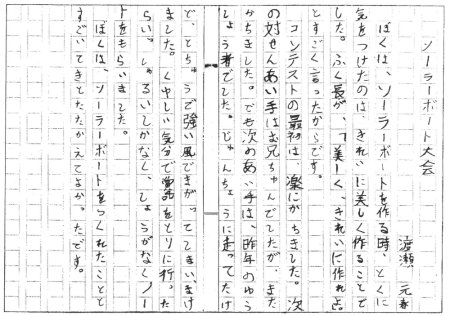 ソーラーボート大会
渡瀬 元春
ぼくは、ソーラーボートを作る時、とくに
気をつけたのは、きれいに美しく作ることで
した。ふく長が、「美しく、きれいに作れよ。」
とすごく言ったからです。
コンテストの最初は、楽にかちました。次
の対せんあい手はお兄ちゃんでしたが、また
かちました。でも次のあい手は、昨年のゆう
しょう者でした。じゅんちょうに走ってたけ
ど、とちゅうで強い風でまがってしまいまけ
ました。くやしい気分で賞品をとりに行った
らい。しゅるいしかなく、しょうがなくノー
トをもらいました。
ぼくは、ソーラーボートをつくれたことと
すごいてきとたたかえてよかったです。